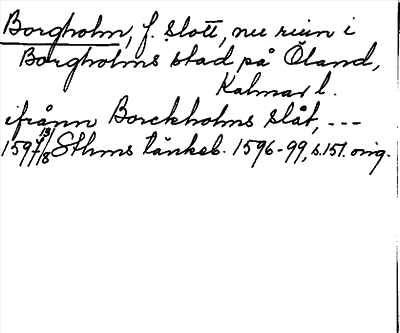 Borgholm, f. slott, nu ruin i
Borgholms stad på Öland,
Kalmar l.
ifrånn Borckholms slåt, ---
1597 13/8 Sthms tänkeb. 1596-99, s. 151. orig.